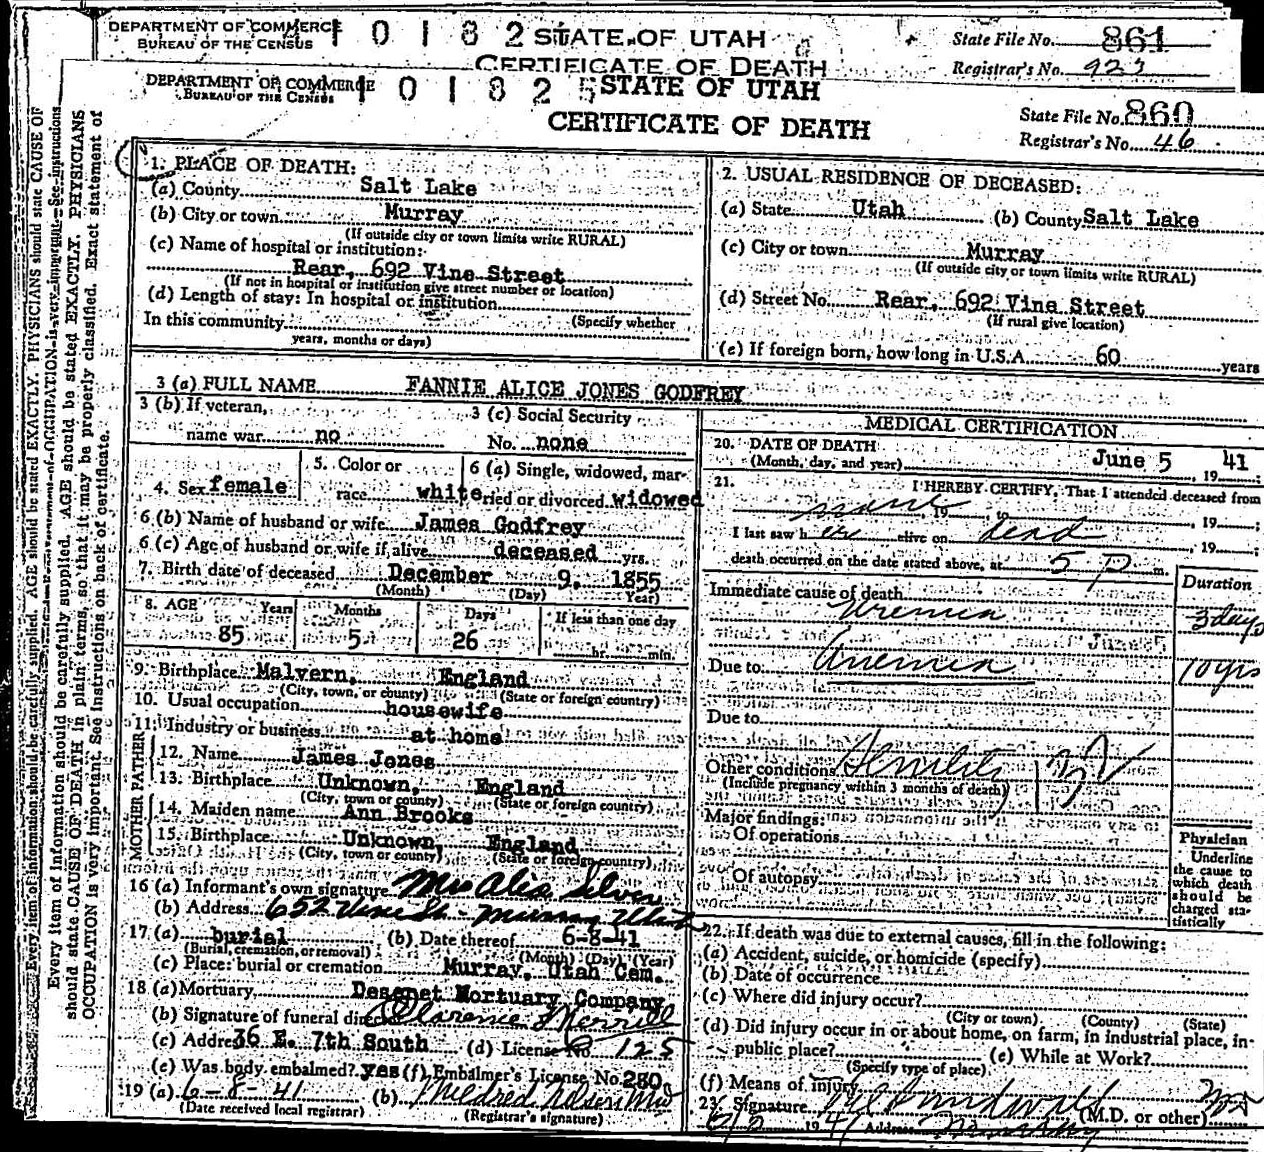 DEPARTMENT OF COMMERCE
BUREAU OF THE CENSUS
1 0 1 8 2
STATE OF UTAH
CERTIFICATE OF DEATH
State File No. 861
Registrar's No. 923
DEPARTMENT OF COMMERCE
BUREAU OF THE CENSUS
1 0 1 8 2 5
STATE OF UTAH
CERTIFICATE OF DEATH
State File No. 860
Registrar's No. 46
Every item of information should be carefully supplied. AGE should be stated EXACTLY. PHYSICIANS
should state CAUSE OF DEATH in plain terms, so that it may be properly classified. Exact statement of
OCCUPATION is very important. See instructions on back of certificate.
1. PLACE OF DEATH:
(a) County Salt Lake
(b) City or town Murray
(If outside city or town limits write RURAL)
(c) Name of hospital or institution:
Rear, 692 Vine Street
(If not in hospital or institution give street number or location)
(d) Length of stay: In hospital or institution
In this community (Specify whether
years, months or days)
2. USUAL RESIDENCE OF DECEASED:
(a) State Utah (b) County Salt Lake
(c) City or town Murray
(If outside city or town limits write RURAL)
(d) Street No. Rear, 692 Vine Street
(If rural give location)
(e) If foreign born, how long in U.S.A. 60 years
3 (a) FULL NAME FANNIE ALICE JONES GODFREY
3 (b) If veteran,
name war no
3 (c) Social Security
No. none
4. Sex female
5. Color or
race white
6 (a) Single, widowed, mar-
ried or divorced widowed
6 (b) Name of husband or wife James Godfrey
6 (c) Age of husband or wife if alive deceased yrs.
7. Birth date of deceased December 9, 1855
(Month) (Day) (Year)
8. AGE Years Months Days If less than one day
85 5 26 hr. min.
9. Birthplace Malvern, England
(City, town, or county) (State or foreign country)
10. Usual occupation housewife
11. Industry or business at home
FATHER
12. Name James Jones
13. Birthplace Unknown, England
(City, town or county) (State or foreign country)
MOTHER
14. Maiden name Ann Brooks
15. Birthplace Unknown, England
(City, town or county) (State or foreign country)
16 (a) Informant's own signature Mrs Alia Silver
(b) Address 652 Vine St - Murray Utah
17 (a) burial (b) Date thereof 6-8-41
(Burial, cremation, or removal) (Month) (Day) (Year)
(c) Place: burial or cremation Murray, Utah Cem.
18 (a) Mortuary Deseret Mortuary Company
(b) Signature of funeral director Clarence Merrill
(c) Address 36 E. 7th South (d) License No. 125
(e) Was body embalmed? yes (f) Embalmer's License No. 280
19 (a) 6-8-41 (b) Mildred
(Date received local registrar) (Registrar's signature)
MEDICAL CERTIFICATION
20. DATE OF DEATH
(Month, day, and year) June 5, 19 41
21. I HEREBY CERTIFY, That I attended deceased from
none, 19 to , 19 ;
I last saw h er alive on dead, 19 ;
death occurred on the date stated above, at 5 P m.
Duration
Immediate cause of death
Uremia 3 days
Due to Anemia 10 yrs
Due to
Other conditions Senility
(Include pregnancy within 3 months of death)
Major findings:
Of operations
Of autopsy
Physician
Underline
the cause to
which death
should be
charged sta-
tistically
22. If death was due to external causes, fill in the following:
(a) Accident, suicide, or homicide (specify)
(b) Date of occurrence
(c) Where did injury occur?
(City or town) (County) (State)
(d) Did injury occur in or about home, on farm, in industrial place, in-
public place? (e) While at Work?
(Specify type of place)
(f) Means of injury
23. Signature (M.D. or other)
19 41 Address Murray